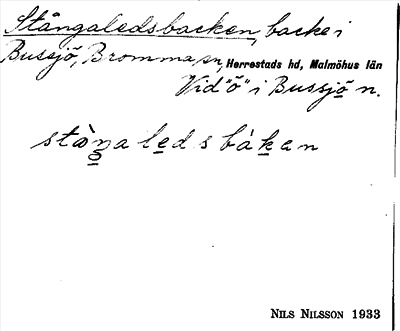 Stångaledsbacken, backe i
Bussjö, Bromma sn, Herrestads hd, Malmöhus län
Vid "ö" i Bussjö n.
NILS NILSSON 1933